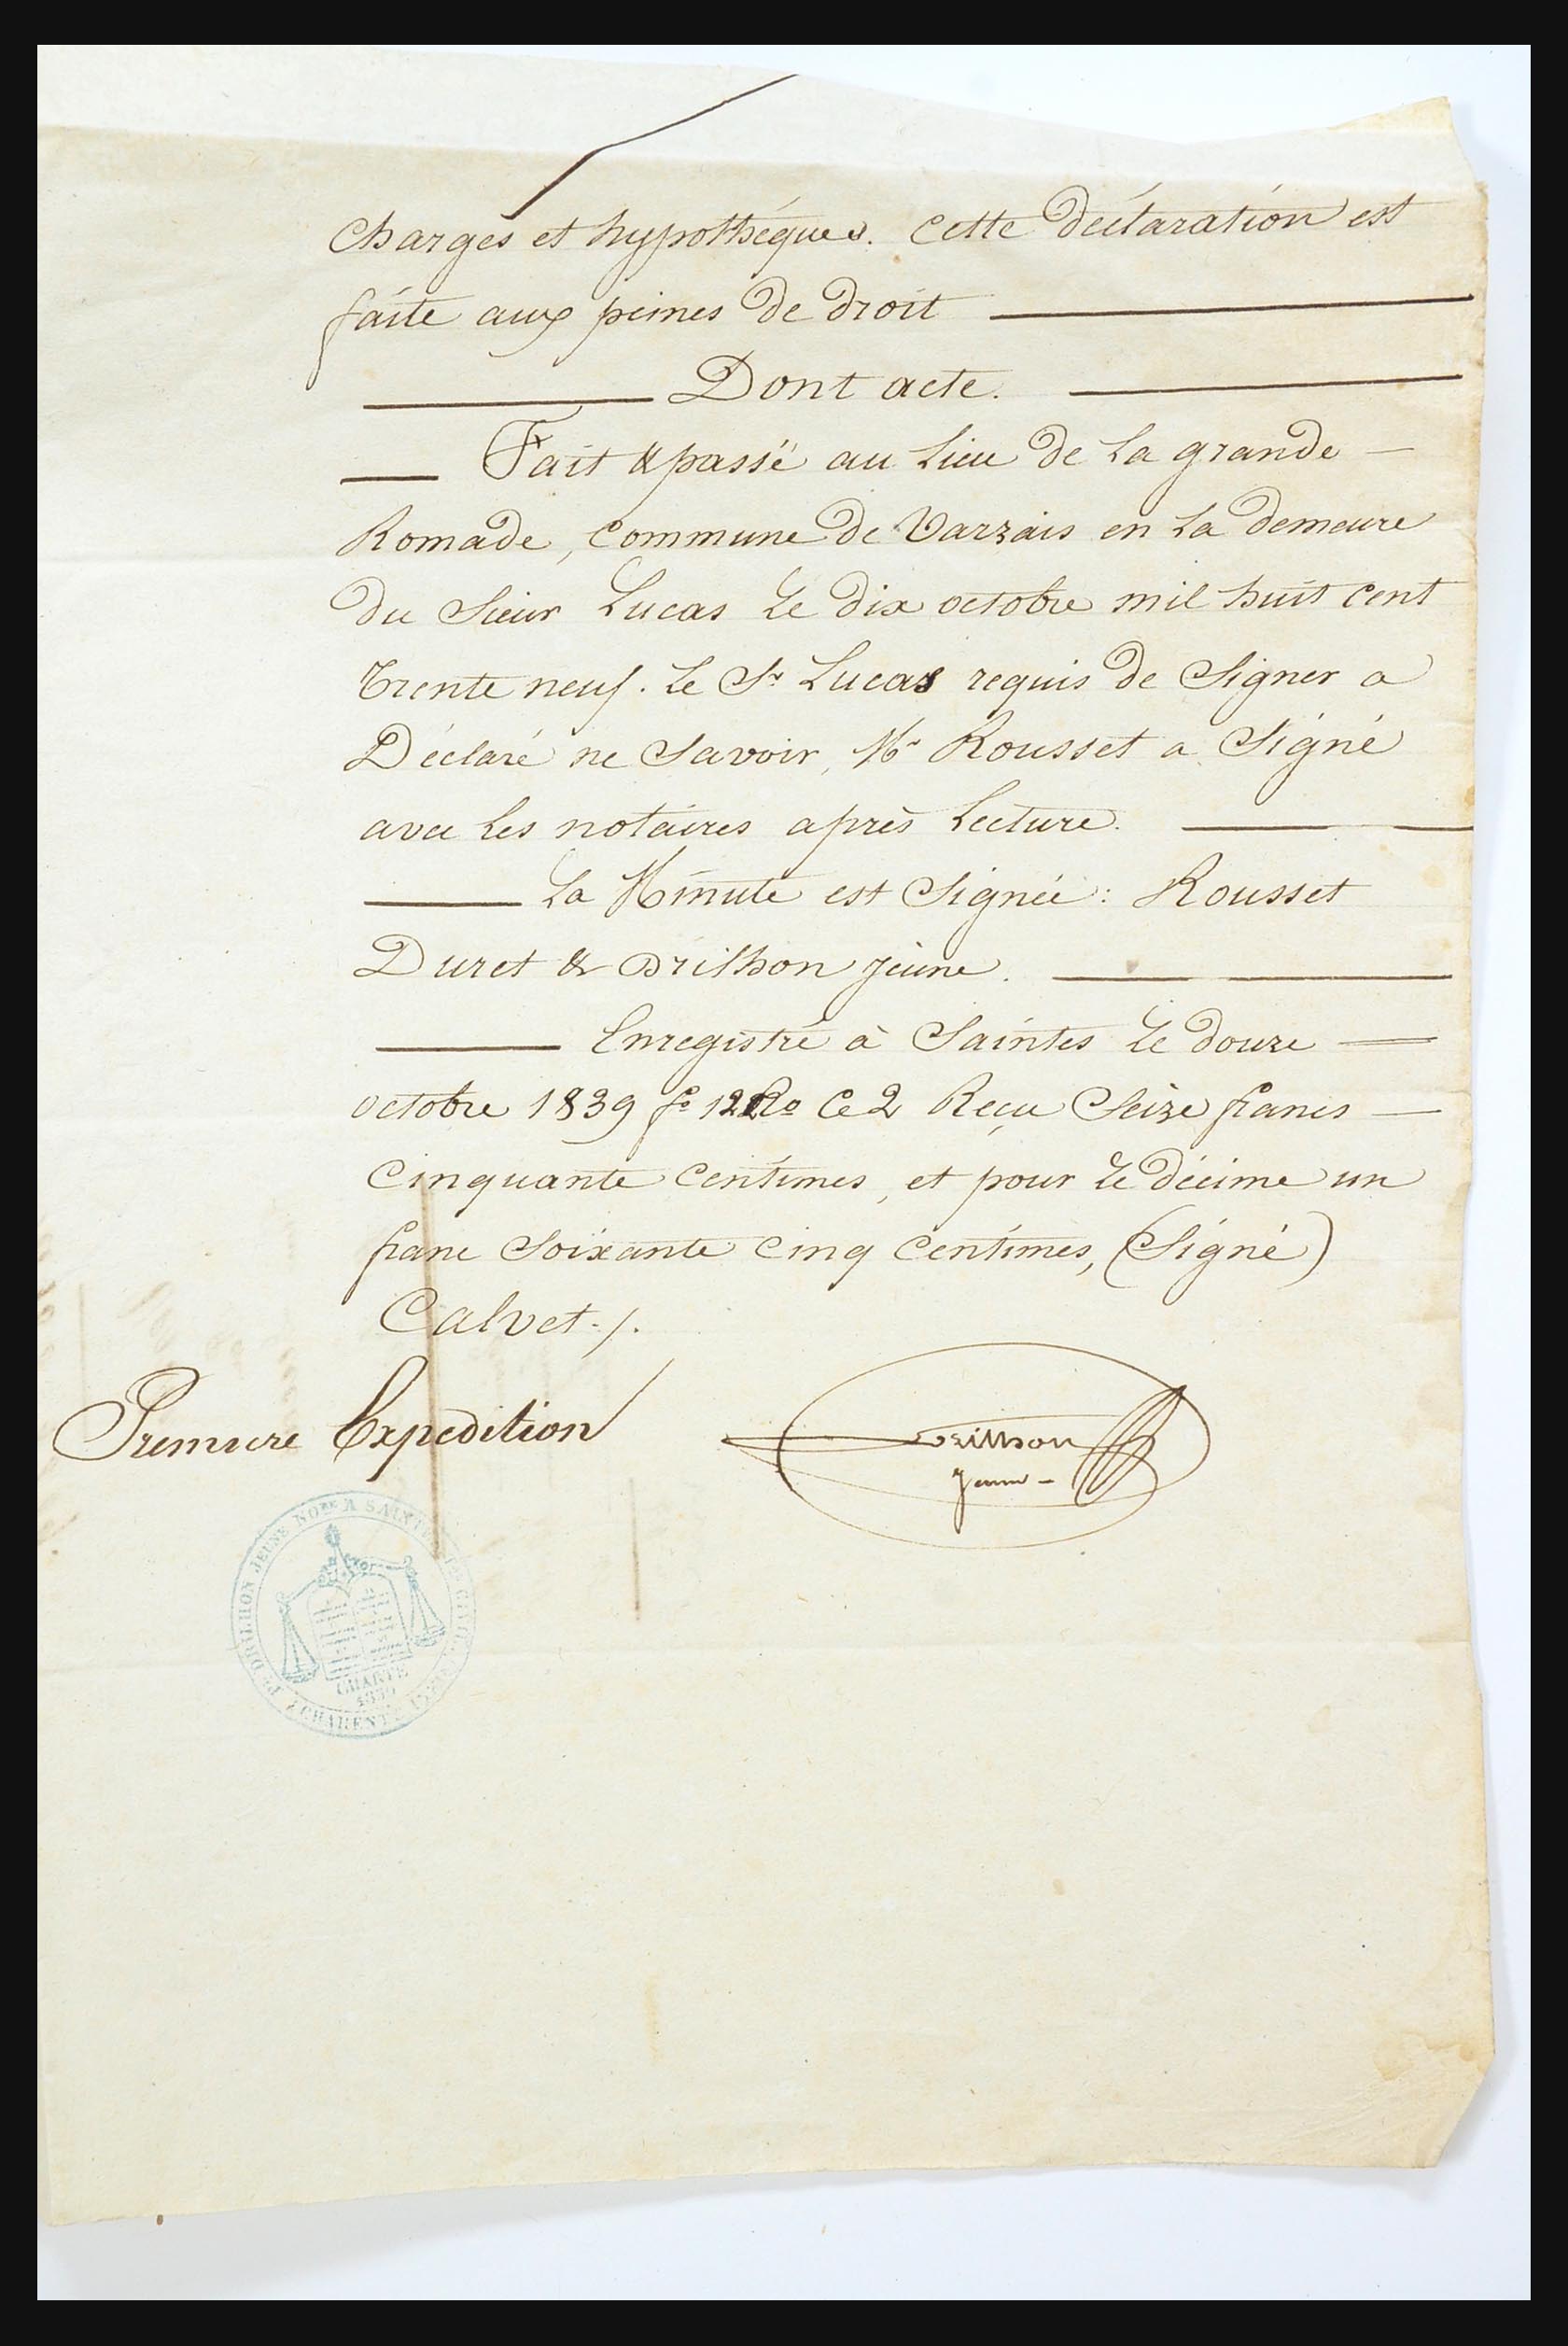 charges et hypothéques. cette déclaration est
faite aux peines de droit
Dont acte.
Fait & passé au lieu de la grande
Romade, commune de Varzais en la demeure
du Sieur Lucas le dix octobre mil huit cent
trente neuf. le Sr Lucas requis de signer a
Déclaré ne savoir, Mr Rousset a signé
avec les notaires après lecture.
la Minute est signée : Rousset
Duret & Drilhon jeune.
Enregistré à Saintes le douze
octobre 1839 fo 12 Ro Ce 2 Reçu seize francs
cinquante centimes, et pour le décime un
franc soixante cinq centimes, (signé)
Calvet ./.
Premiere Expedition
Drilhon
jeune
DRILHON JEUNE NORE A SAINTES
CHARTE
1830
CHARENTE